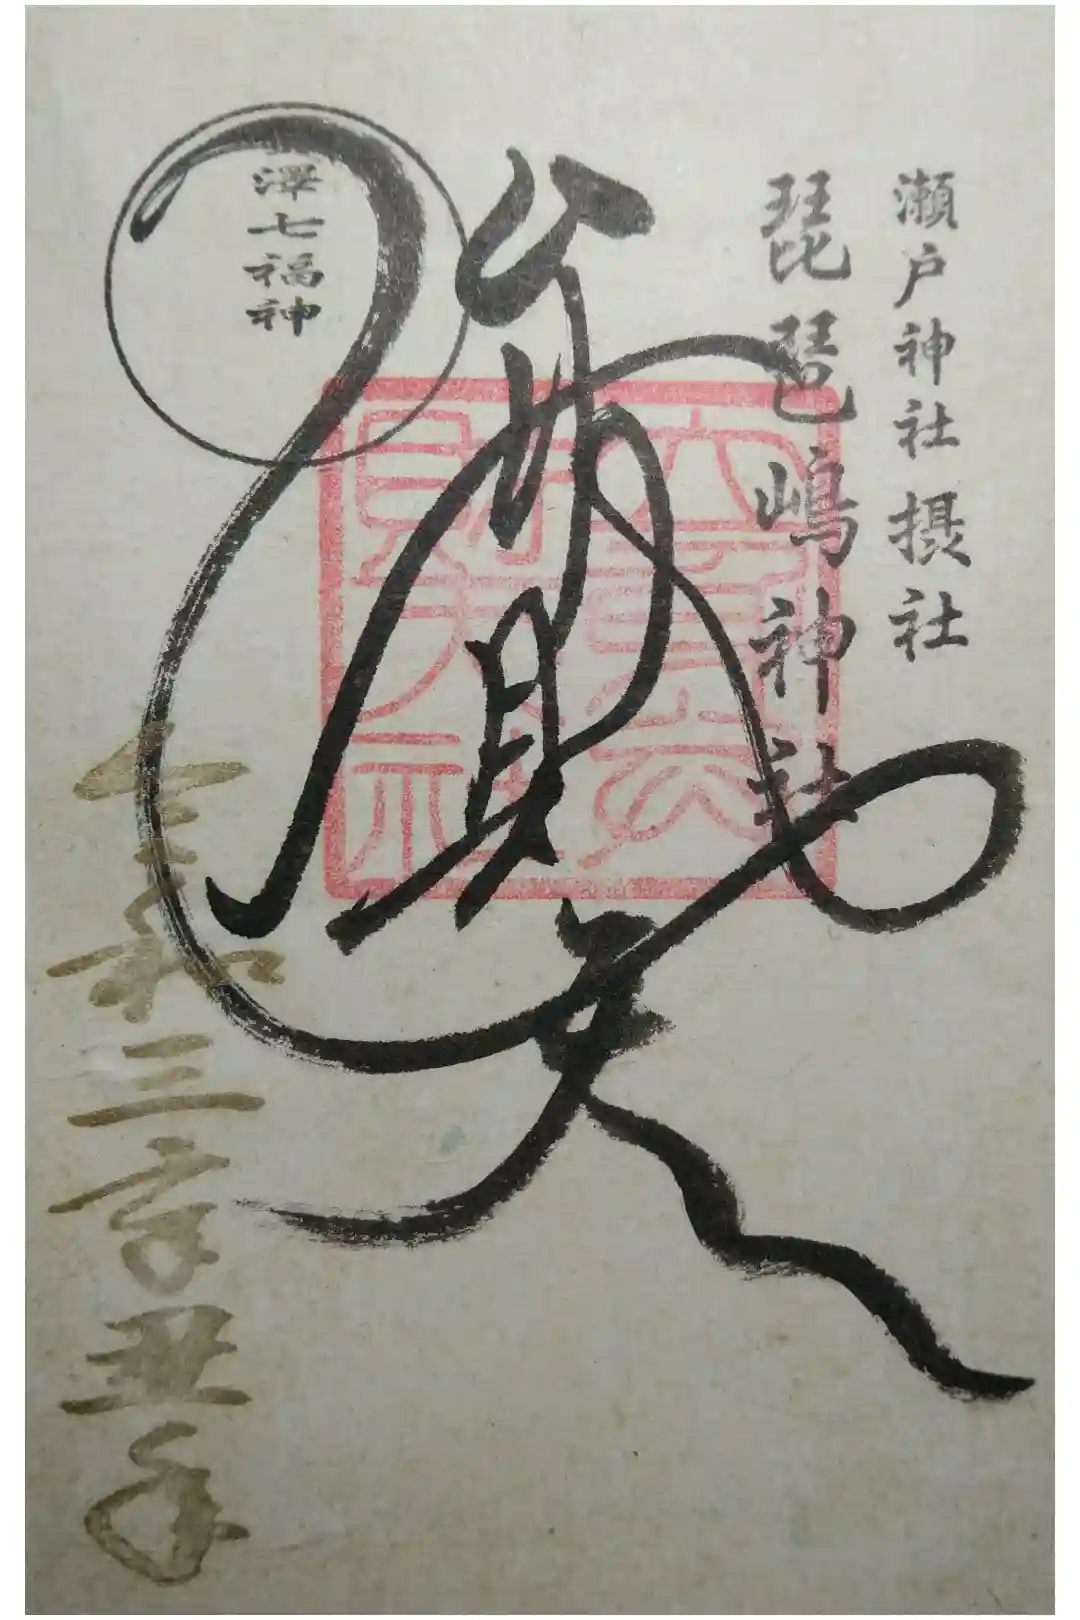 瀬戸神社摂社
琵琶嶋神社
弁財天
澤七福神
令和三辛丑年